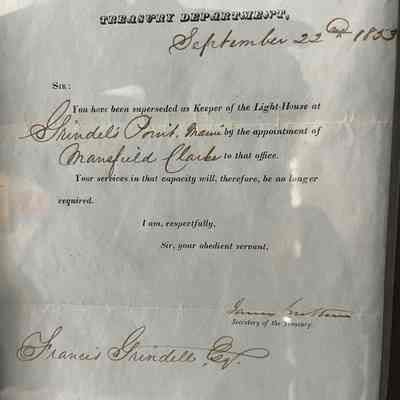 TREASURY DEPARTMENT,
September 22nd, 1853
SIR:
You have been superseded as Keeper of the Light-House at
Grindel's Point, Maine by the appointment of
Mansfield Clarke to that office.
Your services in that capacity will, therefore, be no longer
required.
I am, respectfully,
Sir, your obedient servant,
James Guthrie
Secretary of the Treasury.
Francis Grindell, Esq.